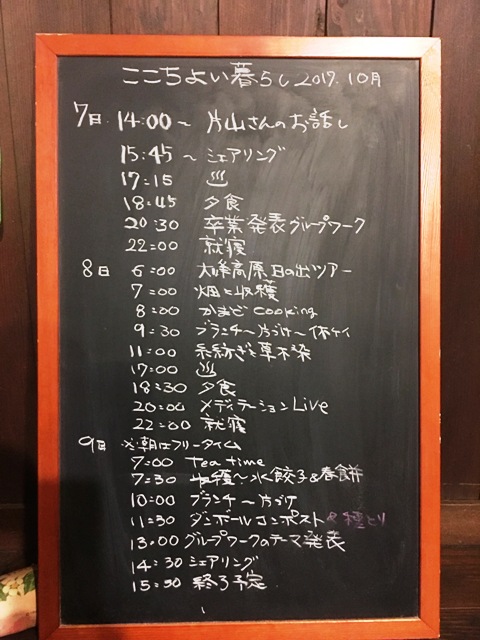 ここちよい暮らし 2017. 10月
7日 14:00〜 片山さんのお話し
15:45 〜シェアリング
17:15 ♨
18:45 夕食
20:30 卒業発表グループワーク
22:00 就寝
8日 6:00 大峰高原日の出ツアー
7:00 畑と収穫
8:00 かまどcooking
9:30 ブランチ〜片づけ〜休ケイ
11:00 糸紡ぎと草木染
17:00 ♨
18:30 夕食
20:00 メディテーションLive
22:00 就寝
9日 ※朝はフリータイム
7:00 Tea time
7:30 収穫〜水餃子&春餅
10:00 ブランチ〜片づけ
11:30 ダンボールコンポスト&種とり
13:00 グループワークのテーマ発表
14:30 シェアリング
15:30 終了予定